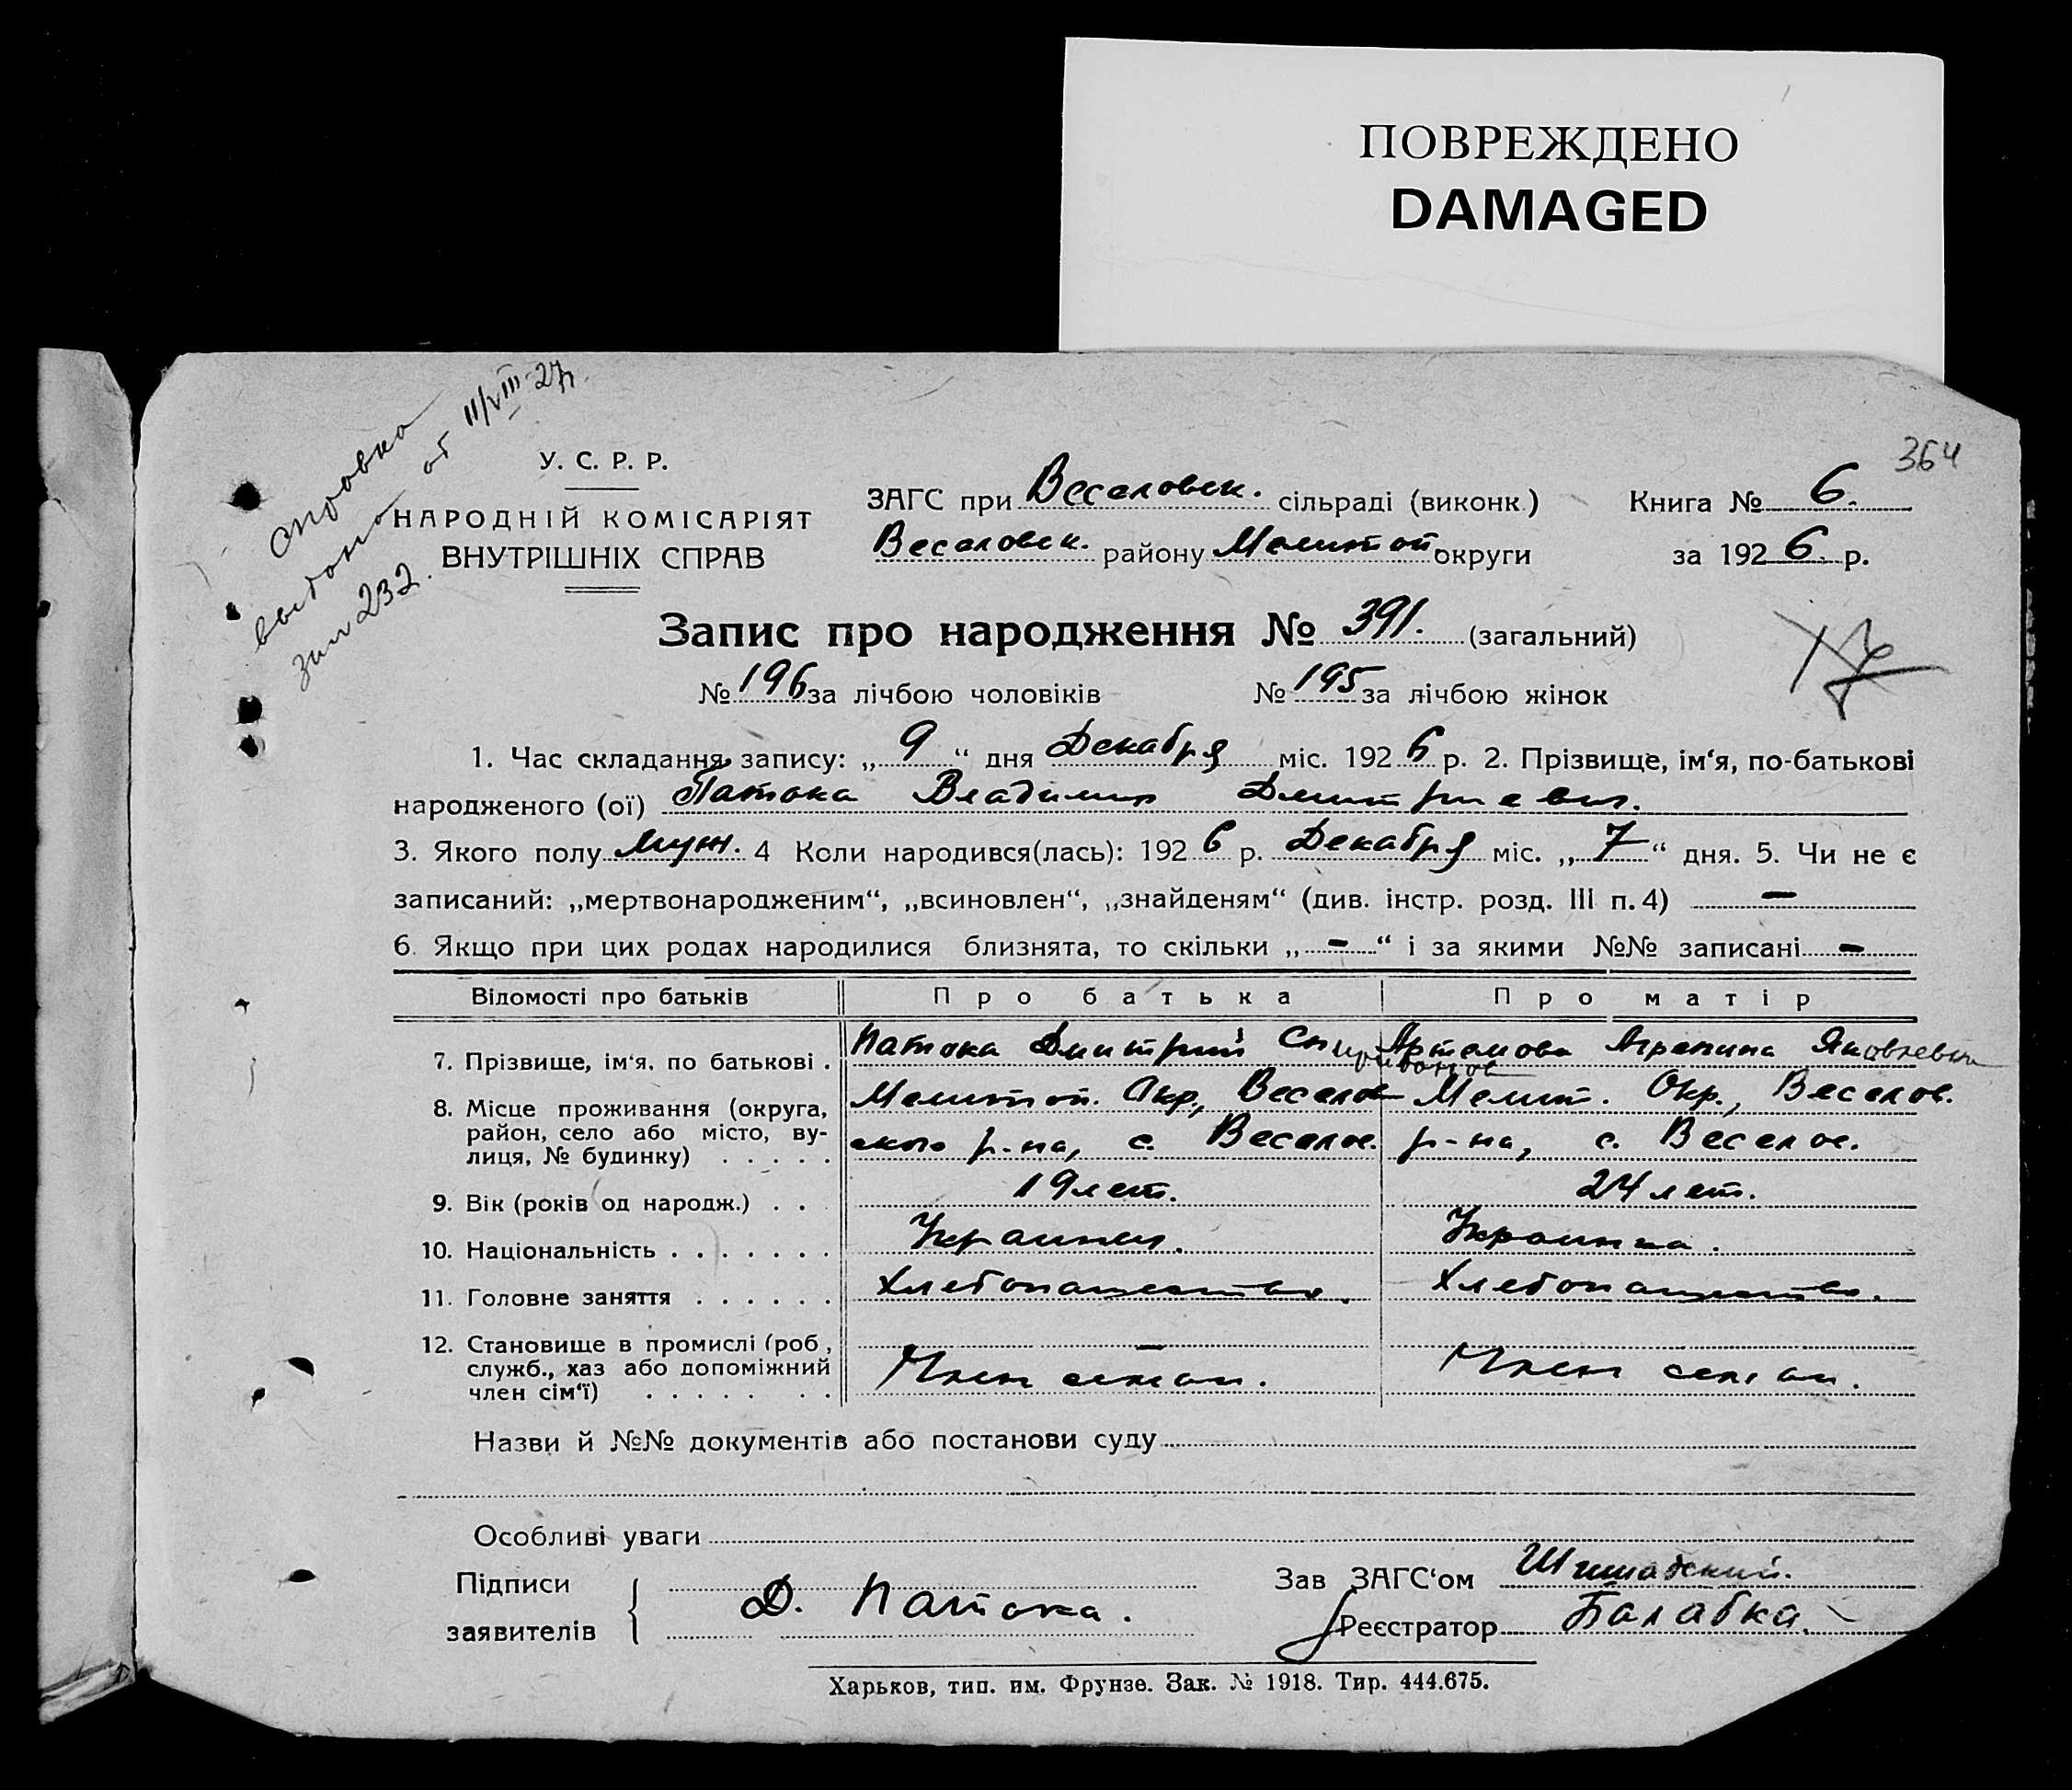 ПОВРЕЖДЕНО
DAMAGED
364
справка
выдана от 11/VIII-27г.
за № 232.
У. С. Р. Р.
НАРОДНІЙ КОМІСАРІЯТ
ВНУТРІШНІХ СПРАВ
ЗАГС при Веселовск. сільраді (виконк.)
Веселовск. району Мелитоп округи
Книга № 6.
за 1926 р.
Запис про народження № 391. (загальний)
№ 196 за лічбою чоловіків № 195 за лічбою жінок
1. Час складання запису: „9“ дня Декабря міс. 1926 р. 2. Прізвище, ім‘я, по-батькові
народженого (ої) Патока Владимир Дмитриевич.
3. Якого полу муж. 4 Коли народився(лась): 1926 р. Декабря міс. „7“ дня. 5. Чи не є
записаний: „мертвонародженим“, „всиновлен“, „знайденям“ (див. інстр. розд. III п. 4) —
6. Якщо при цих родах народилися близнята, то скільки „-“ і за якими №№ записані -
Відомості про батьків Про батька Про матір
7. Прізвище, ім‘я, по батькові . Патока Дмитрий Спиридонов Артемова Агрепина Яковлевна
8. Місце проживання (округа, район, село або місто, вулиця, № будинку) . . . . . Мелитоп. Окр., Веселовского р-на, с. Веселое. Мелит. Окр., Веселов. р-на, с. Веселое.
9. Вік (років од народж.) . . . 19 лет. 24 лет.
10. Національність . . . . . . . Украинец. Украинка.
11. Головне заняття . . . . . . Хлебопашество. Хлебопашество.
12. Становище в промислі (роб., служб., хаз або допоміжний член сім‘ї) . . . . . . . Член семьи. Член семьи.
Назви й №№ документів або постанови суду
Особливі уваги
Підписи
заявителів
Д. Патока.
Зав ЗАГС‘ом
Реєстратор Балабка.
Харьков, тип. им. Фрунзе. Зак. № 1918. Тир. 444.675.